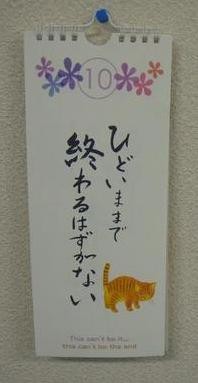 10
ひどいままで
終わるはずがない
This can't be it...
this can't be the end